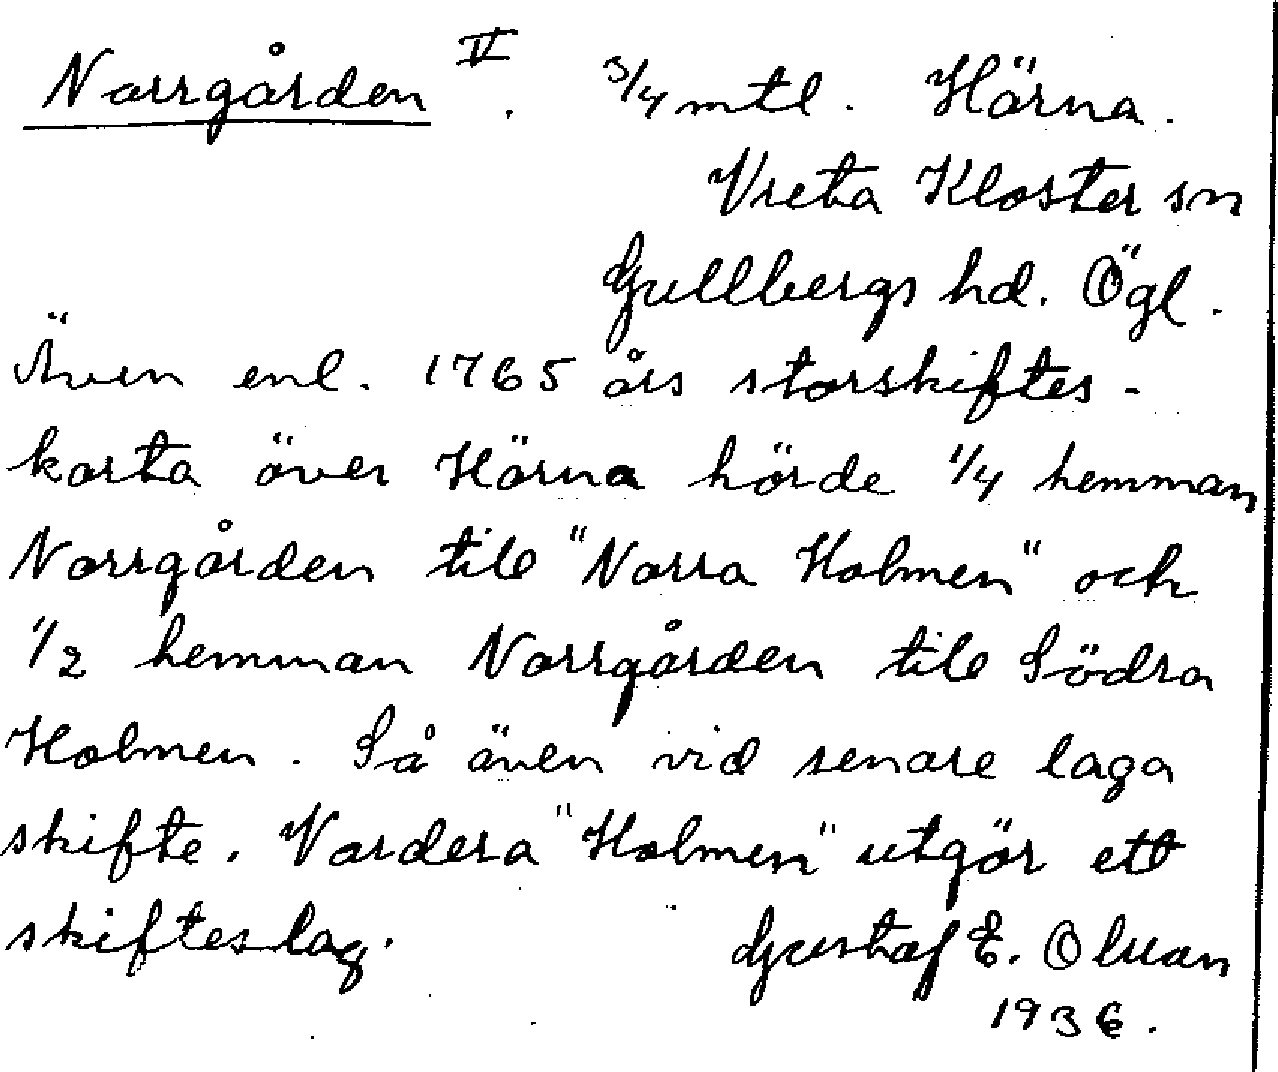 Norrgården IV. 3/4 mtl. Härna.
Vreta Kloster sn
Gullbergs hd. Ögl.
Även enl. 1765 års storskiftes-
karta över Härna hörde 1/4 hemman
Norrgården till "Norra Holmen" och
1/2 hemman Norrgården till Södra
Holmen. Så även vid senare laga
skifte. Vardera "Holmen" utgör ett
skifteslag. Gustaf E.
1936.